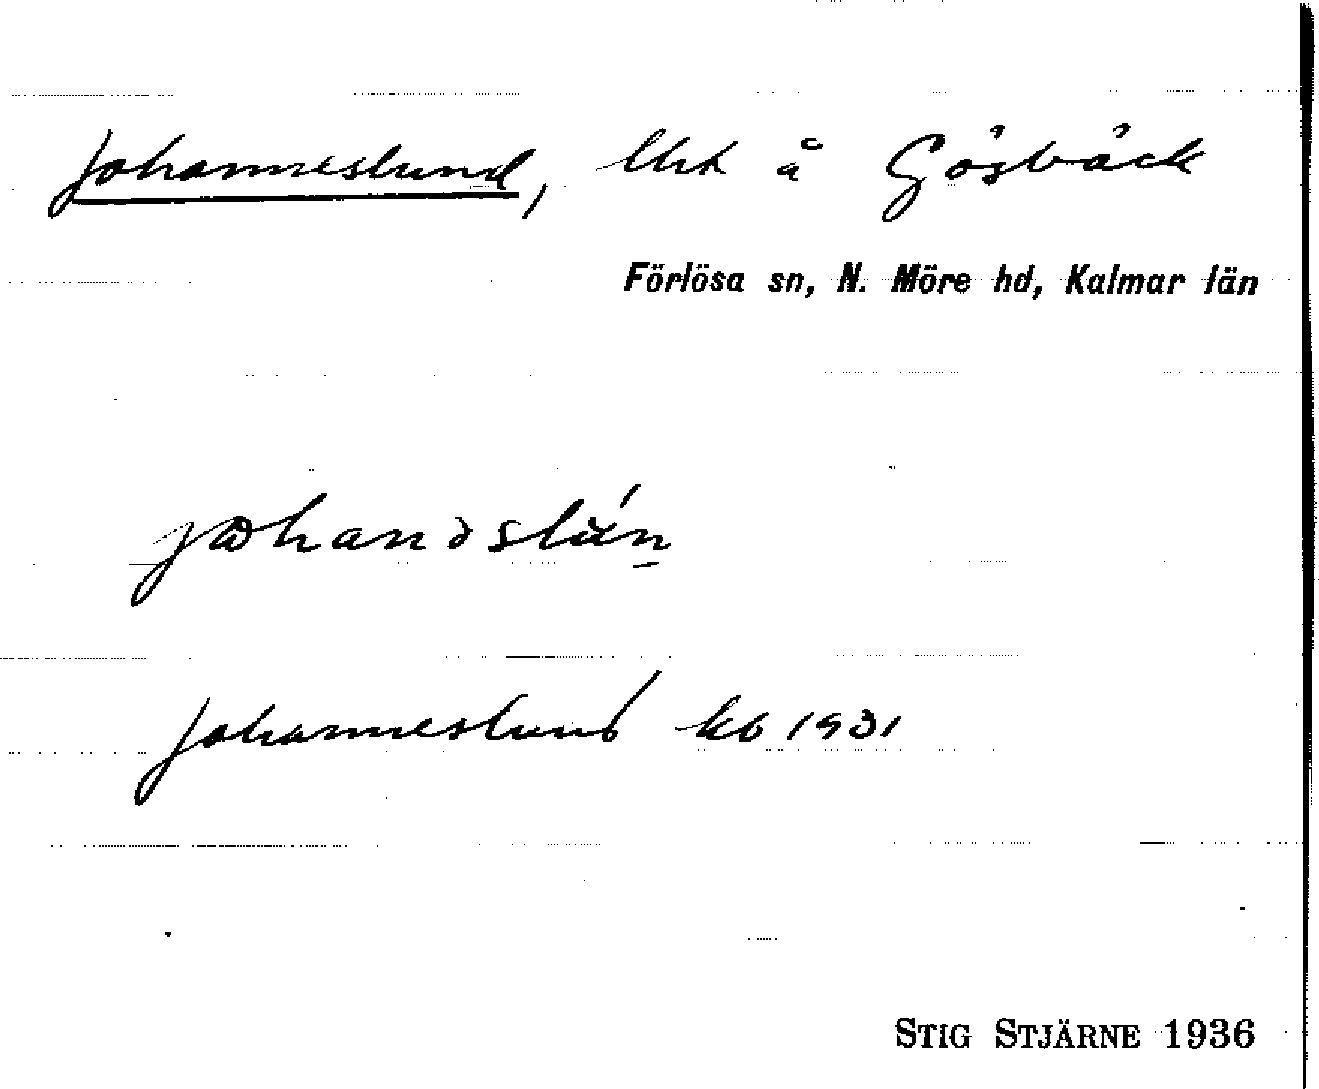 Johanneslund, lht å Gösbäck
Förlösa sn, N. Möre hd, Kalmar län
Johanneslund kb 1931
STIG STJÄRNE 1936